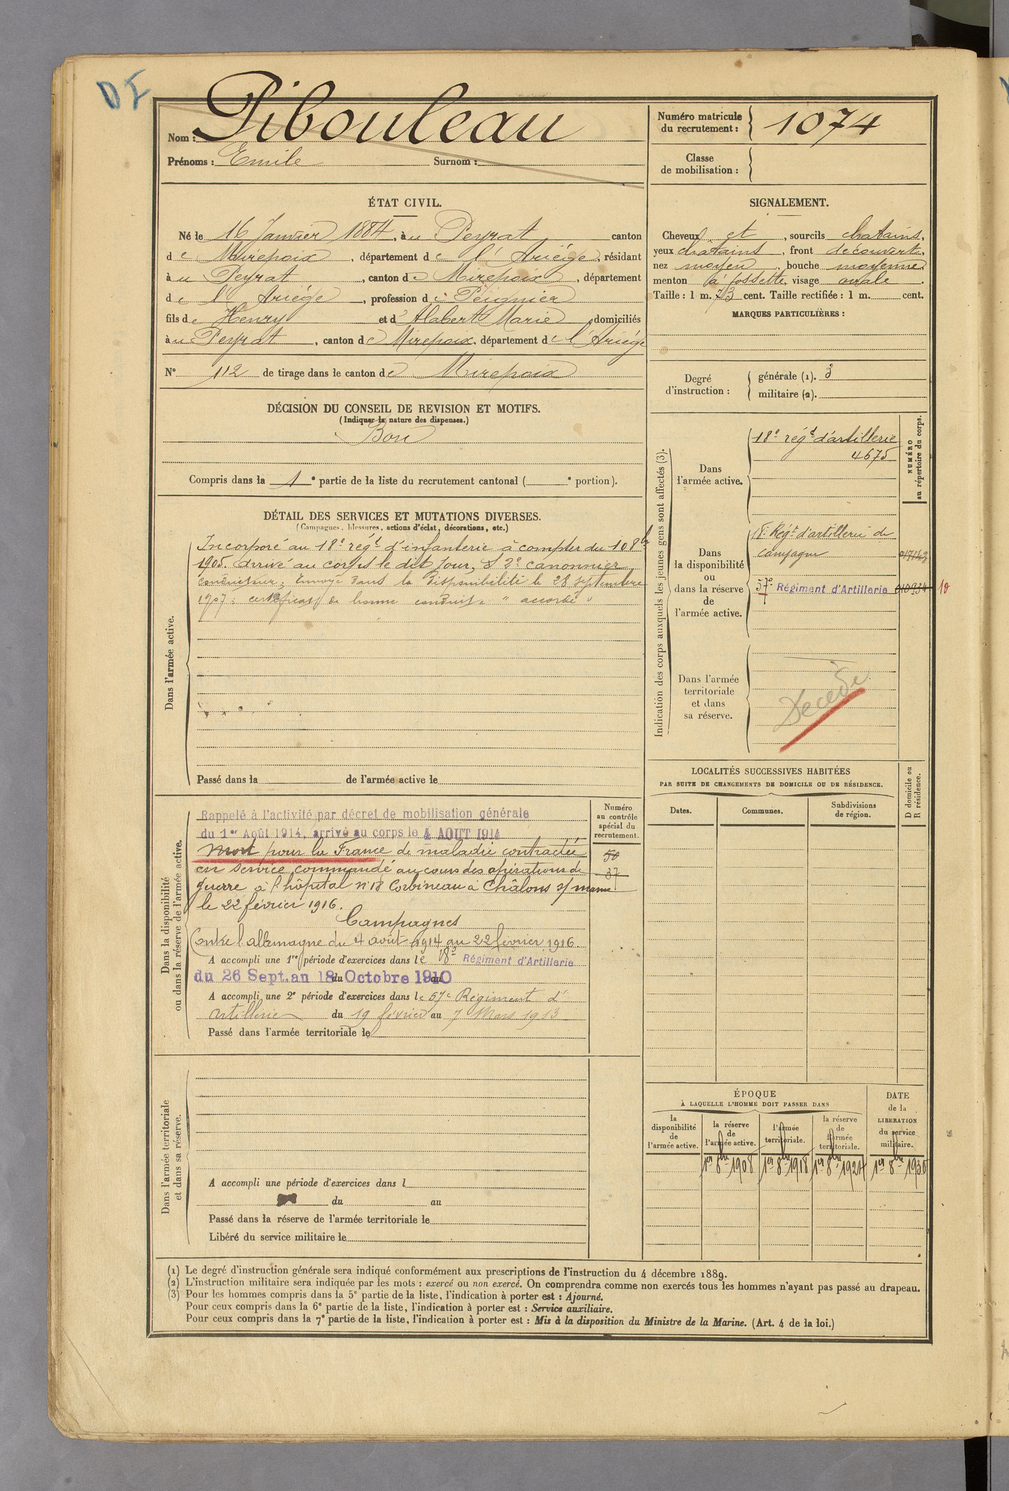 DI
Nom : Pibouleau
Prénoms : Emile Surnom :
ÉTAT CIVIL.
Né le 16 Janvier 1884, à u Peyrat canton
d e Mirepoix, département d e l'Ariège, résidant
à u Peyrat, canton d e Mirepoix, département
d e l'Ariège, profession d e Peignier
fils d e Henry et d' Alabert Marie, domiciliés
à u Peyrat, canton d e Mirepoix, département d e l'Ariège
N° 112 de tirage dans le canton d e Mirepoix
DÉCISION DU CONSEIL DE REVISION ET MOTIFS.
(Indiquer la nature des dispenses.)
Bon
Compris dans la 1e partie de la liste du recrutement cantonal ( e portion).
DÉTAIL DES SERVICES ET MUTATIONS DIVERSES.
(Campagnes, blessures, actions d'éclat, décorations, etc.)
Dans l'armée active.
Incorporé au 18e régt d'infanterie à compter du 10 8bre
1905. arrivé au corps le dit jour, 2e canonnier
conducteur; Envoyé dans la disponibilité le 28 septembre
1907; certificat de bonne conduite " accordé "
Passé dans la de l'armée active le
Dans la disponibilité
ou dans la réserve de l'armée active.
Rappelé à l'activité par décret de mobilisation générale
du 1er Août 1914, arrivé au corps le 4 AOUT 1914
Mort pour la France de maladie contractée
en service commandé au cours des opérations de
guerre à l'hôpital n° 18 Corbineau à Châlons s/ marne
le 22 février 1916.
Campagnes
Contre l'allemagne du 4 août 1914 au 22 février 1916.
A accompli une 1re période d'exercices dans le 18e Régiment d'Artillerie
du 26 Sept. au 18 Octobre 1910
A accompli une 2e période d'exercices dans le 57e Régiment d'
artillerie du 19 février au 7 Mars 1913
Passé dans l'armée territoriale le
Numéro
au contrôle
spécial du
recrutement.
Dans l'armée territoriale
et dans sa réserve.
A accompli une période d'exercices dans l
du au
Passé dans la réserve de l'armée territoriale le
Libéré du service militaire le
Numéro matricule
du recrutement : 1074
Classe
de mobilisation :
SIGNALEMENT.
Cheveux et, sourcils chatains,
yeux chatains, front découvert
nez moyen, bouche moyenne
menton à fossette, visage ovale
Taille : 1 m. 73 cent. Taille rectifiée : 1 m. cent.
MARQUES PARTICULIÈRES :
Degré
d'instruction :
générale (1). 3
militaire (2).
Indication des corps auxquels les jeunes gens sont affectés (3).
NUMÉRO
au répertoire du corps.
Dans
l'armée active.
18e régt d'artillerie
4675
Dans
la disponibilité
ou
dans la réserve
de
l'armée active.
18e Régt d'artillerie de
campagne
57e Régiment d'Artillerie
18
Dans l'armée
territoriale
et dans
sa réserve.
Décédé
LOCALITÉS SUCCESSIVES HABITÉES
PAR SUITE DE CHANGEMENTS DE DOMICILE OU DE RÉSIDENCE.
D domicile ou
R résidence.
Dates.
Communes.
Subdivisions
de région.
ÉPOQUE
À LAQUELLE L'HOMME DOIT PASSER DANS
la
disponibilité
de
l'armée active.
la réserve
de
l'armée active.
l'armée
territoriale.
la réserve
de
l'armée
territoriale.
DATE
de la
LIBÉRATION
du service
militaire.
1er 8bre 1908
1er 8bre 1918
(1) Le degré d'instruction générale sera indiqué conformément aux prescriptions de l'instruction du 4 décembre 1889.
(2) L'instruction militaire sera indiquée par les mots : exercé ou non exercé. On comprendra comme non exercés tous les hommes n'ayant pas passé au drapeau.
(3) Pour les hommes compris dans la 5e partie de la liste, l'indication à porter est : Ajourné.
Pour ceux compris dans la 6e partie de la liste, l'indication à porter est : Service auxiliaire.
Pour ceux compris dans la 7e partie de la liste, l'indication à porter est : Mis à la disposition du Ministre de la Marine. (Art. 4 de la loi.)